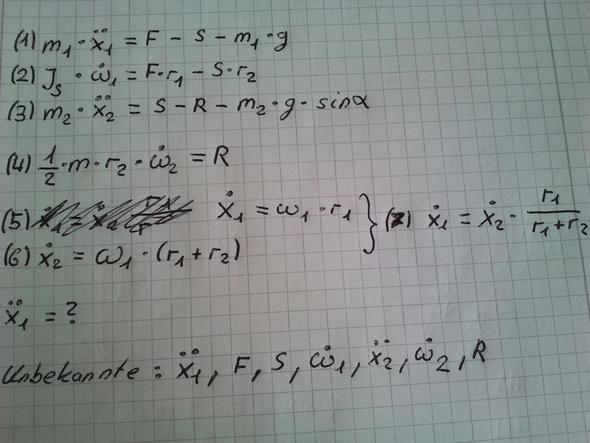 (1) m₁ · ẍ₁ = F - S - m₁ · g
(2) J_S · ω̇₁ = F · r₁ - S · r₂
(3) m₂ · ẍ₂ = S - R - m₂ · g · sinα
(4) 1/2 · m · r₂ · ω̇₂ = R
(5) ẋ₁ = ω₁ · r₁ } (7) ẋ₁ = ẋ₂ · r₁/(r₁+r₂)
(6) ẋ₂ = ω₁ · (r₁ + r₂)
ẍ₁ = ?
Unbekannte : ẍ₁, F, S, ω̇₁, ẍ₂, ω̇₂, R